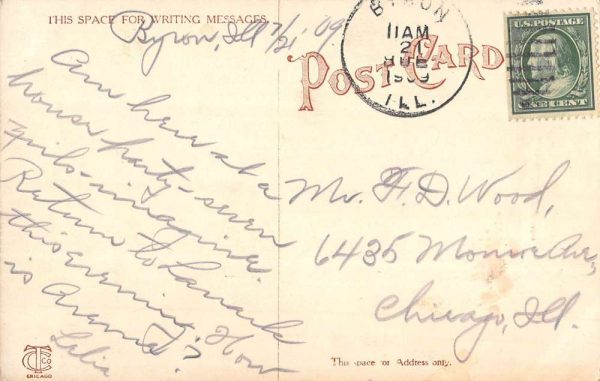 THIS SPACE FOR WRITING MESSAGES.
Byron, Ill 7/21 '09.
Am here at a
house party - seven
girls - imagine.
Return to Lanark
this evening. How
is
Lelia
CT Co
CHICAGO
POST CARD
BYRON
11 AM
2
1909
ILL.
U.S. POSTAGE
ONE CENT
Mr. F. D. Wood,
6435 Monroe Av,
Chicago, Ill.
This space for Address only.